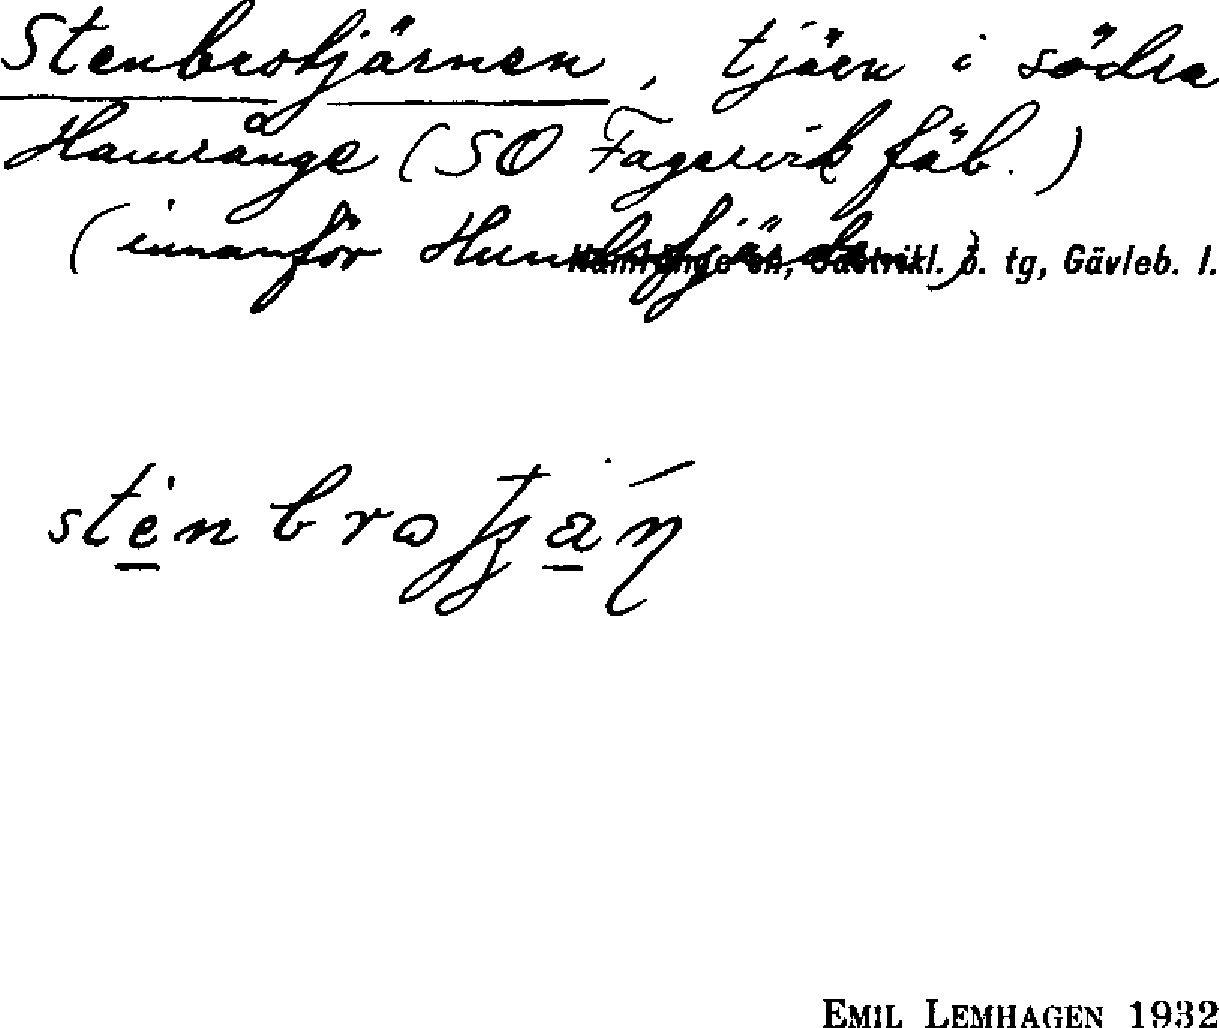 Stenbrotjärnen, tjärn i södra
Hamrånge (SO Fagervik fäb.)
(innanför Hundsfjärden)
Hamrånge sn, Gästrikl. ö. tg, Gävleb. l.
EMIL LEMHAGEN 1932